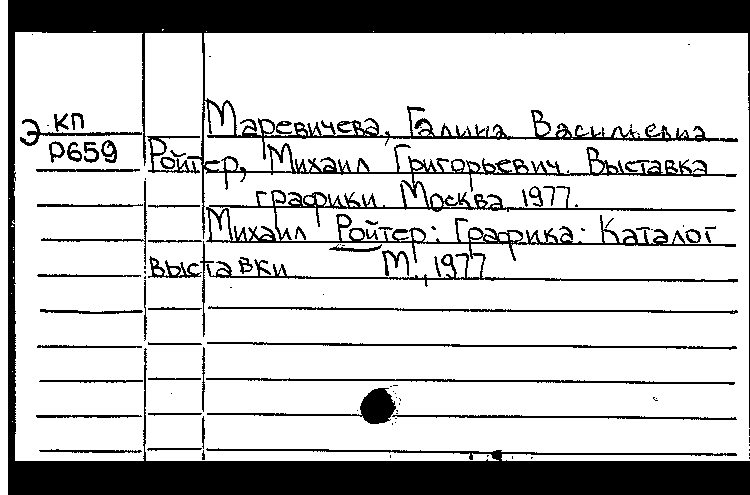 Э КП
Р659
Маревичева, Галина Васильевна
Ройтер, Михаил Григорьевич. Выставка
графики. Москва. 1977.
Михаил Ройтер: Графика: Каталог
выставки М., 1977